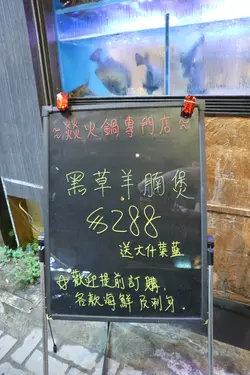 ~焱火鍋專門店~
黑草羊腩煲
$288
送大什菜籃
歡迎提前訂購.
各款海鮮及刺身.